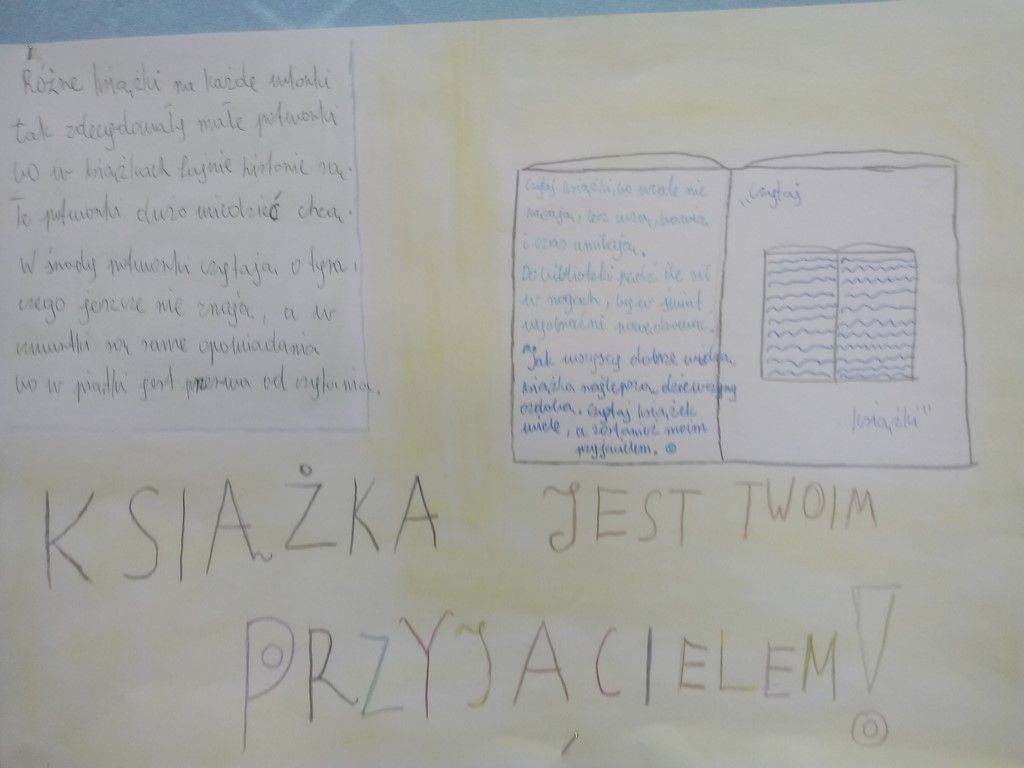 Różne książki na każde wtorki
tak zdecydowały małe potworki
bo w książkach fajnie historie są.
Te potworki dużo wiedzieć chcą.
W środy potworki czytają o tym,
czego jeszcze nie znają, a w
czwartki są same opowiadania
bo w piątki jest przerwa od czytania.
czytaj książki, bo wcale nie
lecz uczą, bawią
i czas umilają.
Do biblioteki pędź ile sił
w nogach, by w świat
wyobraźni powędrować.
Jak wszyscy dobrze wiedzą
książka najlepszą dziewczyny
ozdobą. Czytaj książek
wiele, a zostaniesz moim
przyjacielem.
„czytaj
książki"
KSIĄŻKA JEST TWOIM
PRZYJACIELEM!